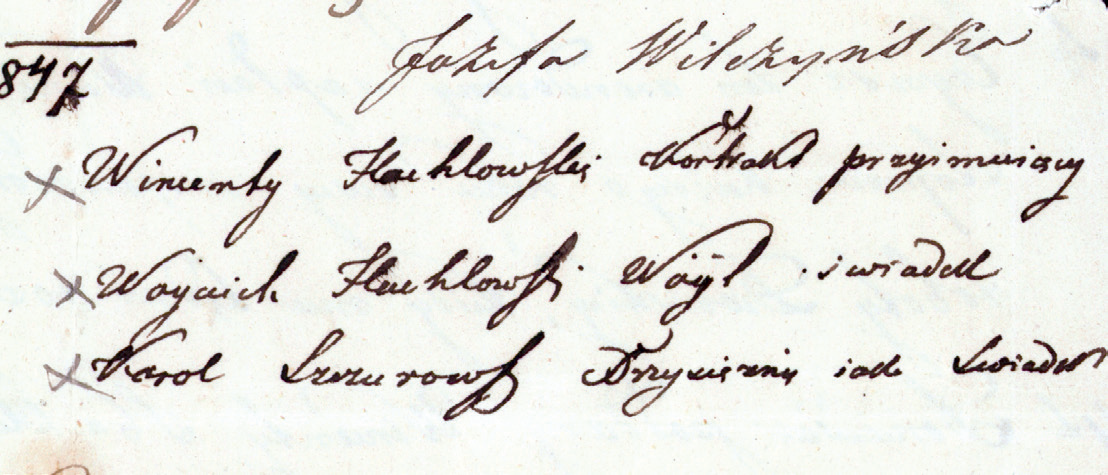 847 Józefa Wilczyńska
Wincenty Hachlowski Kontrakt przyimuiący
Woyciech Hachlowski Wóyt i swiadek
Karol Szczurowski Przysięzny iako Swiadek